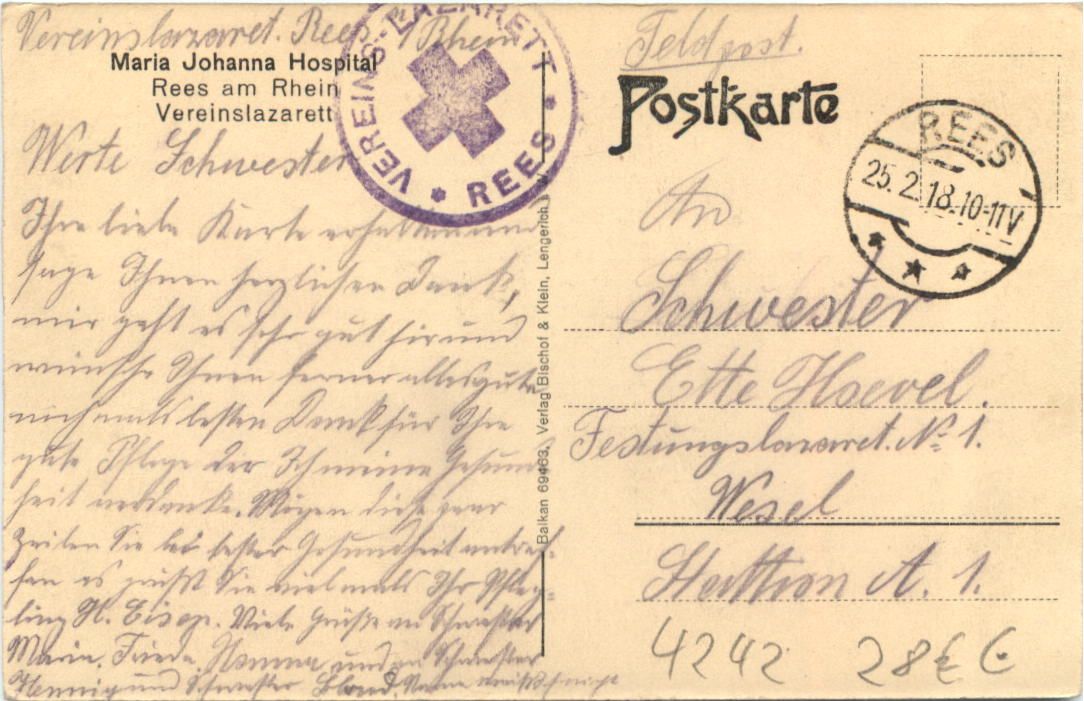 Vereinslazaret. Rees a/Rhein
Maria Johanna Hospital
Rees am Rhein
Vereinslazarett
VEREINS-LAZARETT
* REES *
Werte Schwester
Ihre liebe Karte erhalten und
sage Ihnen herzlichen Dank,
mir geht es sehr gut hir und
wünsche Ihnen ferner alles gute
nochmals besten Dank für Ihre
gute Pflege der Ich meine Gesund
heit verdanke. Mögen diese paar
Zeilen Sie bei bester Gesundheit antref-
fen es grüßt Sie vielmals Ihr Pfleg-
ling H. Viele Grüße an Schwester
Maria, Frieda, und an Schwester
Hennig und Schwester
Balkan 69463, Verlag Bischof & Klein, Lengerich
Feldpost.
Postkarte
REES
25.2.18.10-11V
An
Schwester
Ette Hoevel.
Festungslazaret. No 1.
Wesel
Station A. 1.
4242 28€